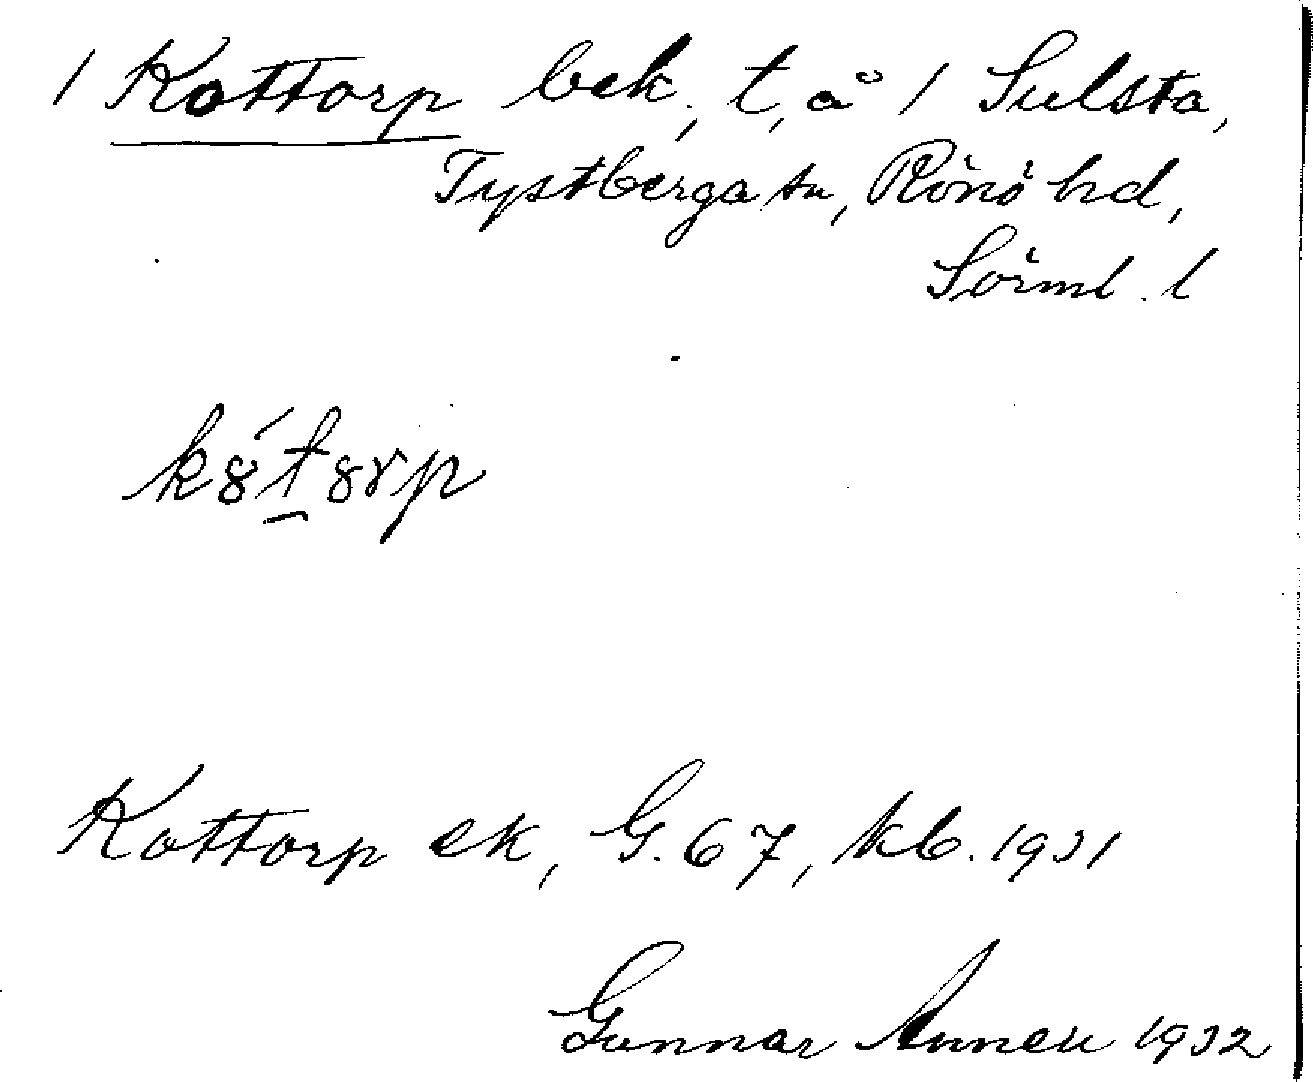 1 Kottorp bek., t, å 1 Sulsta,
Tystberga sn, Rönö hd,
Sörml. l
k8́t8rp
Kottorp ek, G. 67, kb. 1931
Gunnar 1932